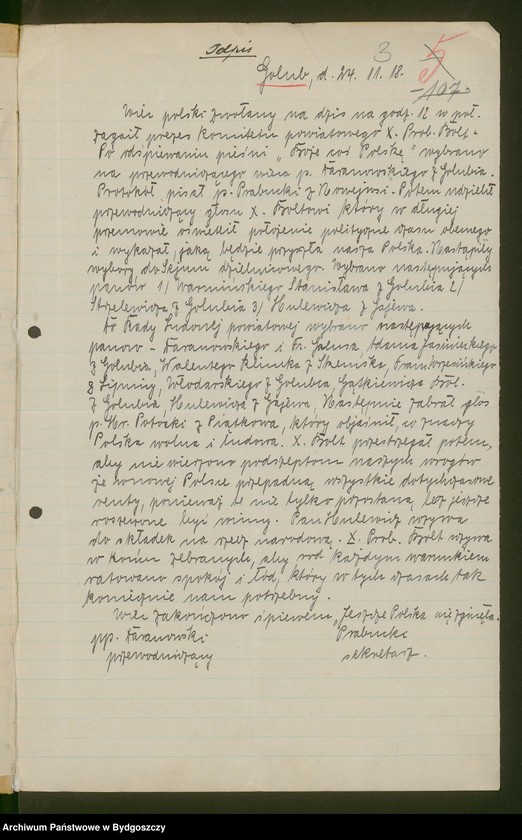 Odpis
3
5
Golub, d. 24. 11. 18.
107.
Wiec polski zwołany na dziś na godz. 12 w poł.
zagaił prezes komitetu powiatowego X. Prob. Bolt.
Po odśpiewaniu pieśni „Boże coś Polskę" wybrano
na przewodniczącego wiecu p. Taranowskiego z Golubia.
Protokół pisał p. Prabucki z Nowejwsi. Potem udzielił
przewodniczący głosu X. Boltowi który w dłuższej
przemowie oświetlił położenie polityczne czasu obecnego
i wykazał, jaką będzie przyszła nasza Polska. Nastąpiły
wybory do Sejmu dzielnicowego. Wybrano następujących
panów 1/ Warmińskiego Stanisława z Golubia 2/
Strzelewicza z Golubia 3/ Hulewicza z Gajewa.
Do Rady Ludowej powiatowej wybrano następujących
panów – Taranowskiego i Fr. Galusa Adama Jaśnieckiego
z Golubia, Walentego Klimka z Skemska,
z Lipnicy, Włodarskiego z Golubia, Gątkiewicza Bol.
z Golubia, Hulewicza z Gajewa, Następnie zabrał głos
p. Hr. Potocki z Piątkowa, który objaśnił, co znaczy
Polska wolna i ludowa. X. Bolt przestrzegał potem,
aby nie wierzono podszeptom naszych wrogów
że w nowej Polsce przepadną wszystkie dotychczasowe
renty, ponieważ te nie tylko pozostaną, lecz jeszcze
rozszerzone być winny. Pan Hulewicz wzywa
do składek na rzecz narodową. X. Prob. Bolt wzywa
w końcu zebranych, aby pod każdym warunkiem
ratowano spokój i ład, który w tych czasach tak
koniecznie nam potrzebny.
Wiec zakończono śpiewem „Jeszcze Polska nie zginęła.
pp. Taranowski Prabucki
przewodniczący sekretarz.
Archiwum Państwowe w Bydgoszczy